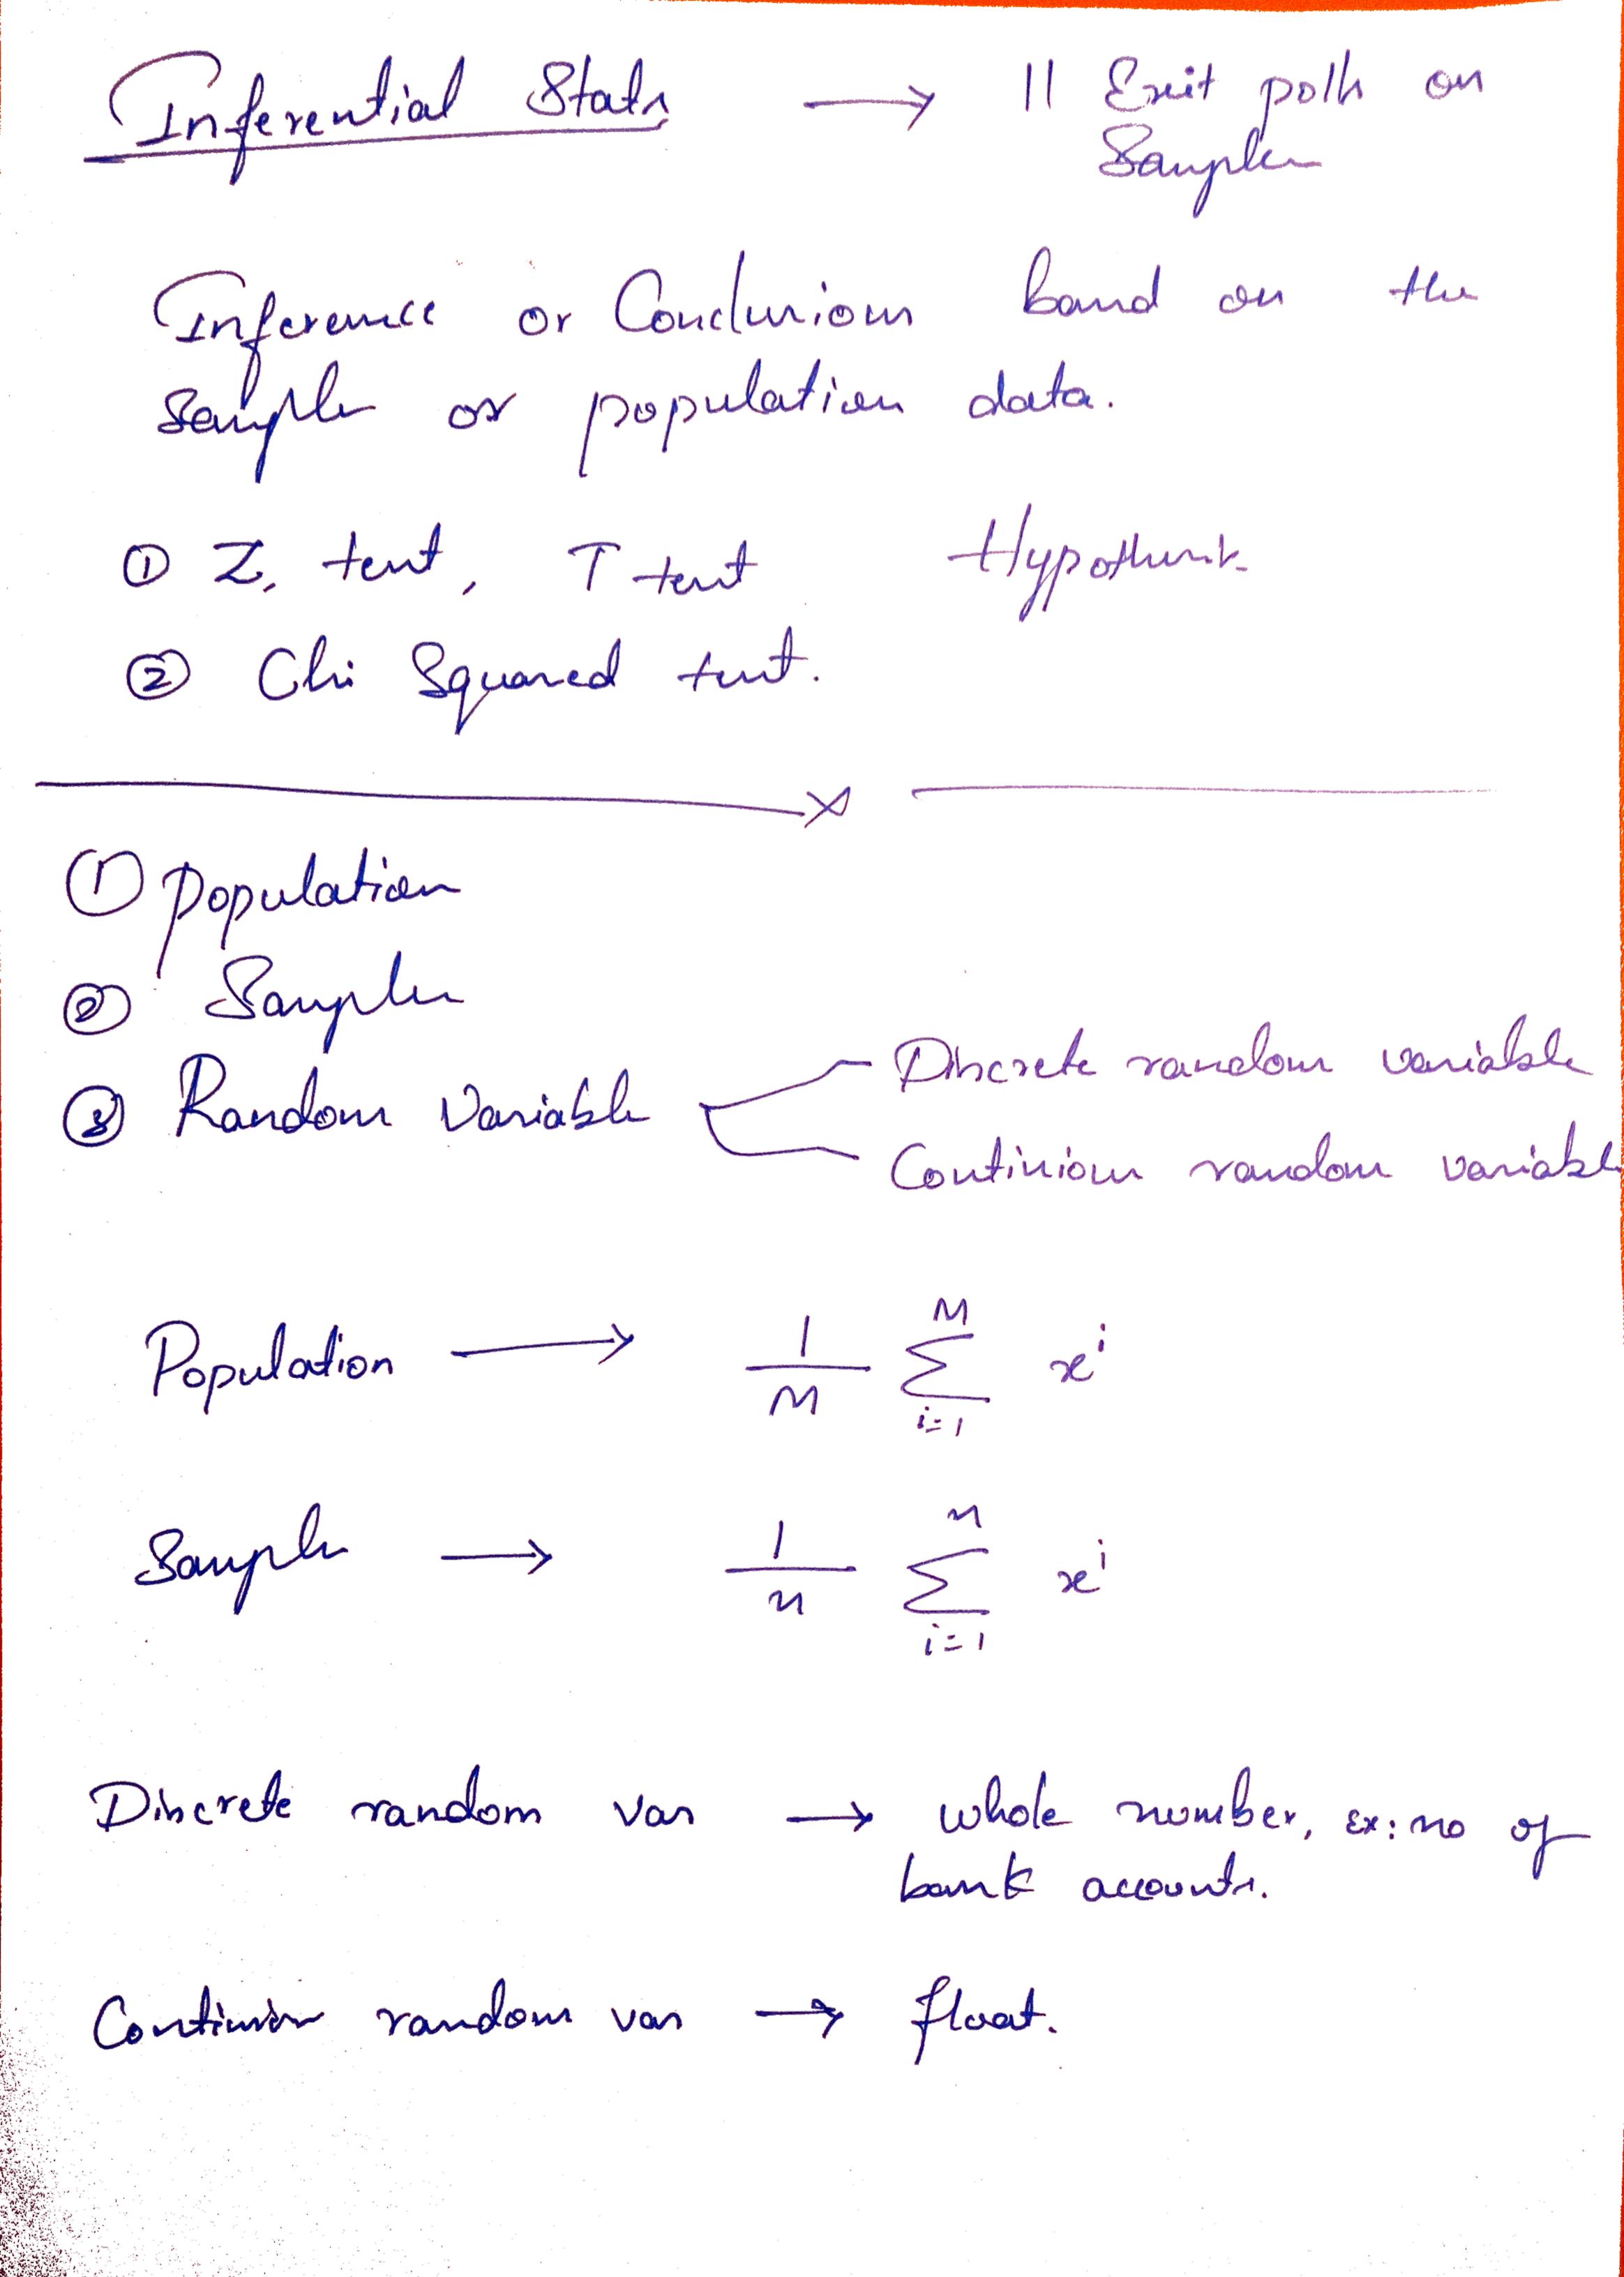 Inferential Stats → || Exit polls on
Samples
Inference or Conclusions based on the
Sample or population data.
① Z. test, T test Hypothesis
② Chi Squared test.
① Population
② Sample
③ Random Variable Discrete random variable
Continious random variable
Population → 1/M M Σ i=1 xⁱ
Sample → 1/n n Σ i=1 xⁱ
Discrete random var → whole number, Ex: no of
bank accounts.
Continious random var → float.